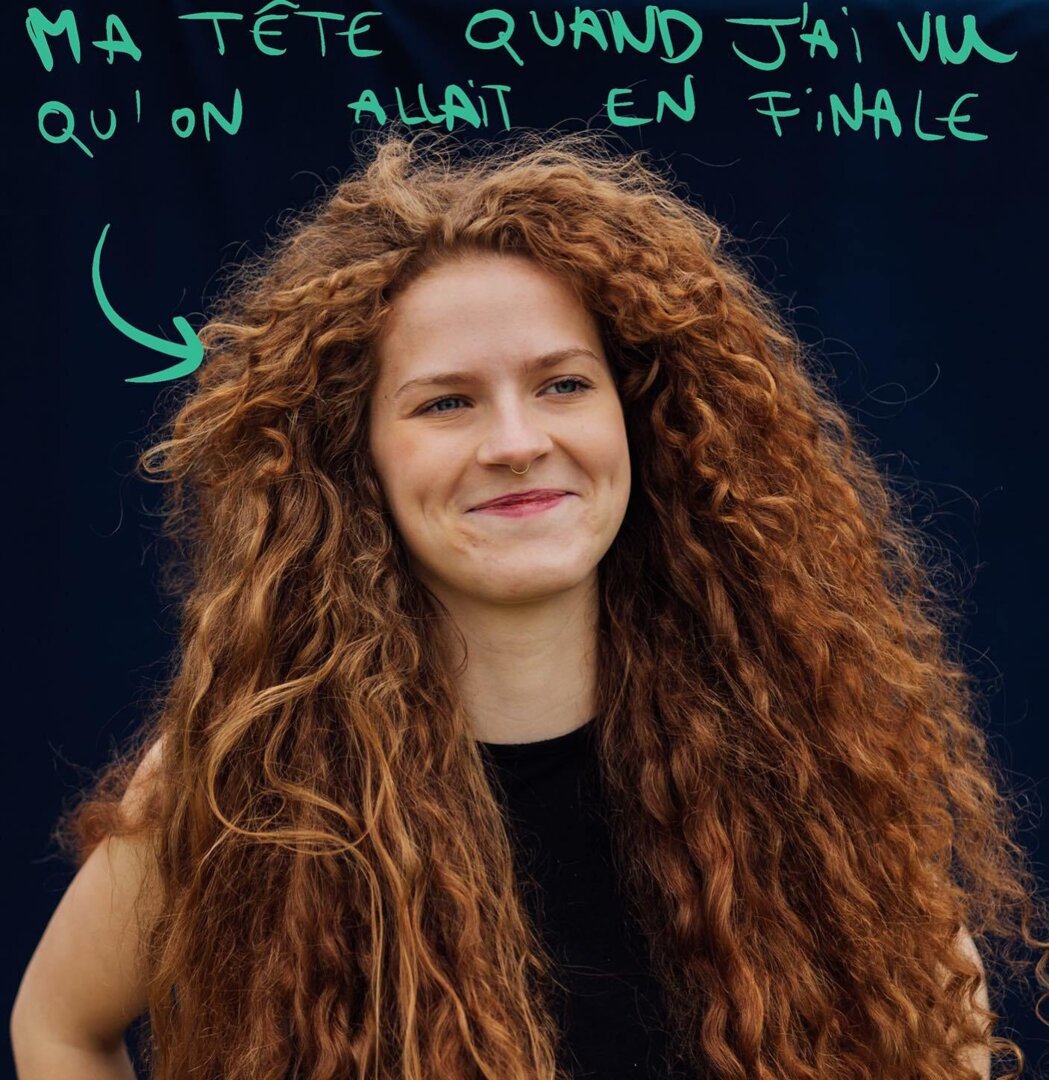 MA TÊTE QUAND J'Ai VU
QU'ON ALLAiT EN FiNALE